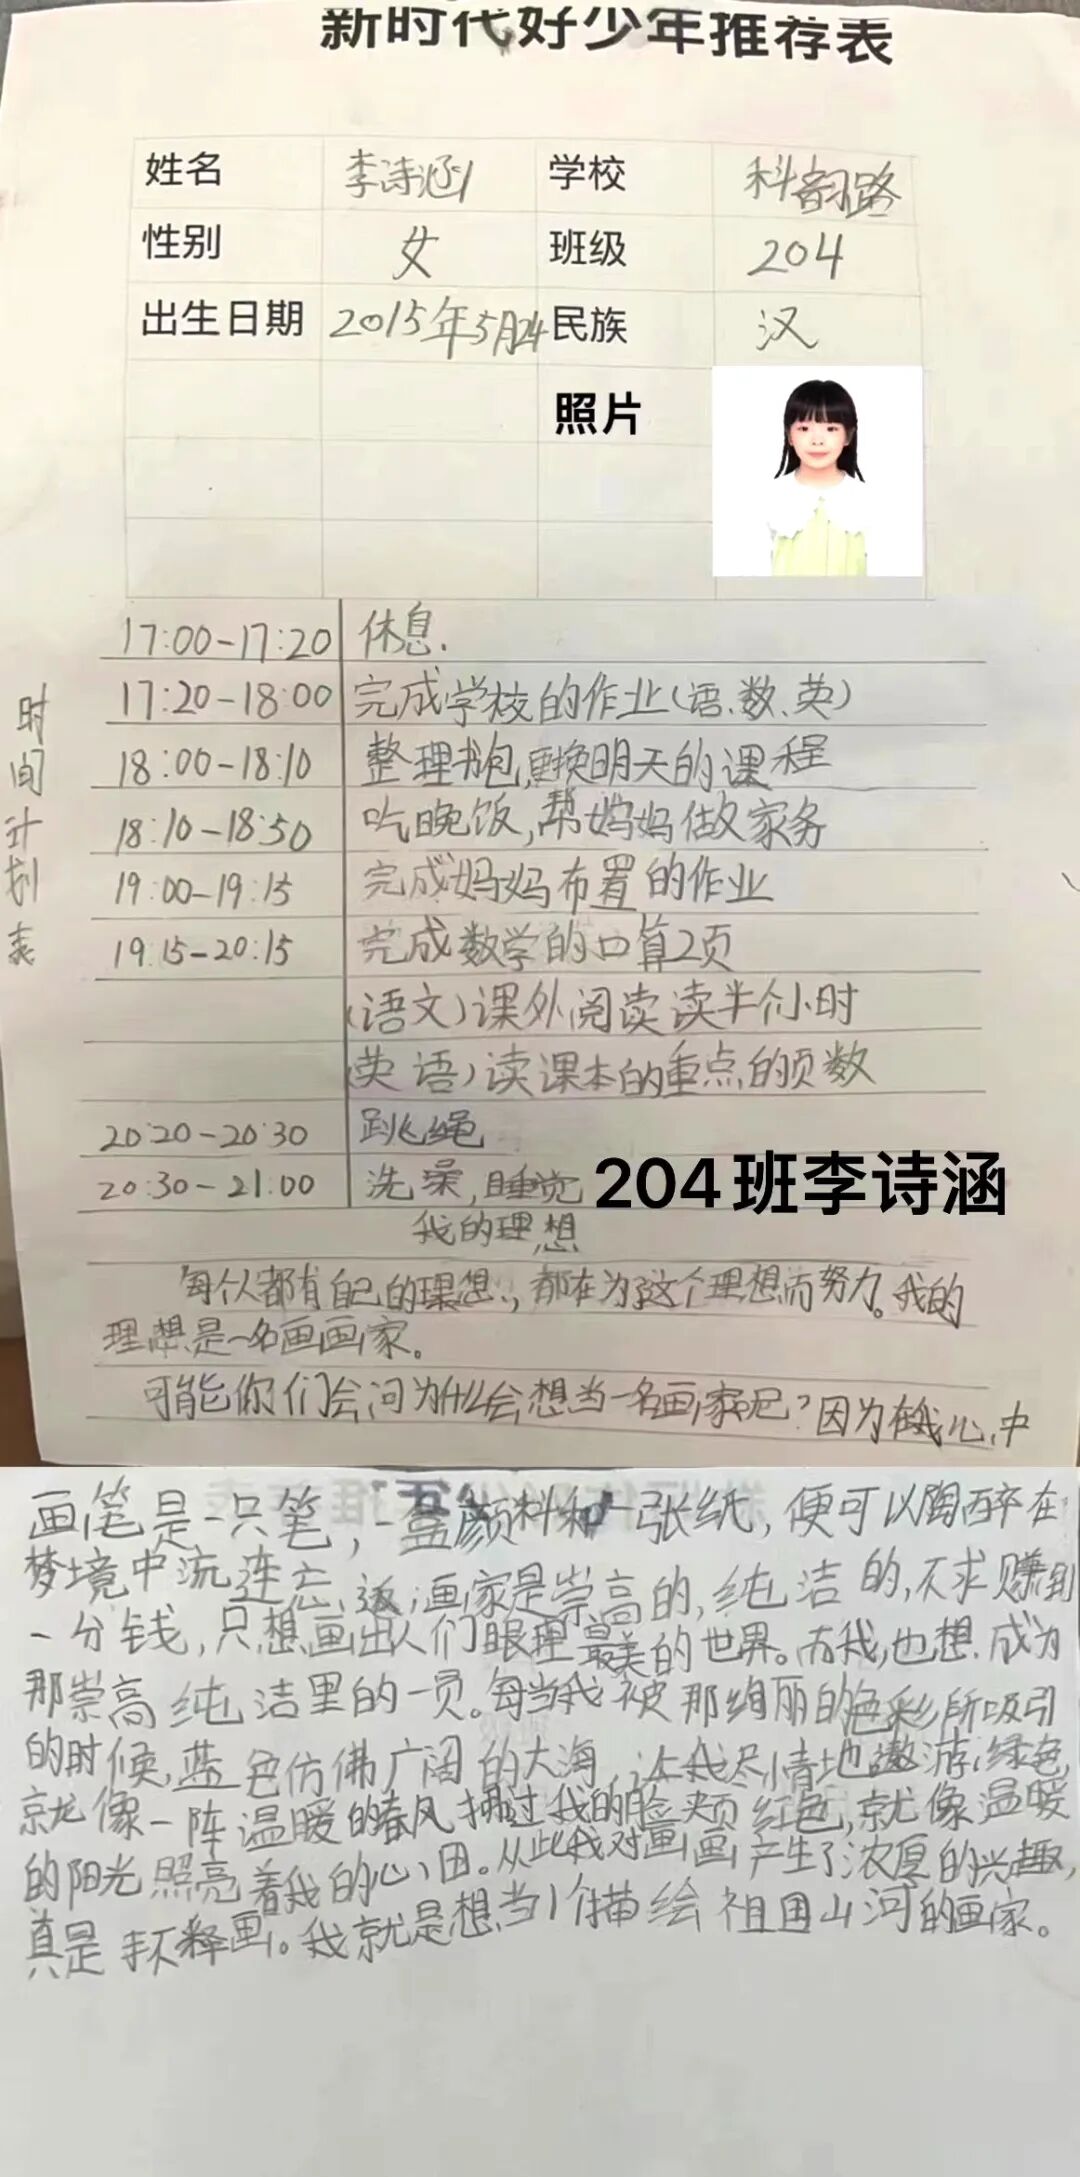 新时代好少年推荐表
姓名 李诗涵 学校 科韵路
性别 女 班级 204
出生日期 2015年5月24 民族 汉
照片
时间计划表
17:00-17:20 休息.
17:20-18:00 完成学校的作业(语.数.英)
18:00-18:10 整理书包,更换明天的课程
18:10-18:50 吃晚饭,帮妈妈做家务
19:00-19:15 完成妈妈布置的作业
19:15-20:15 完成数学的口算2页
(语文)课外阅读读半个小时
(英语)读课本的重点的页数
20:20-20:30 跳绳
20:30-21:00 洗澡,睡觉
204班李诗涵
我的理想
每个人都有自己的理想,都在为了这个理想而努力。我的
理想是一名画画家。
可能你们会问为什么会想当一名画家呢?因为在我心中
画笔是一只笔,一盒颜料和一张纸,便可以陶醉在
梦境中流连忘返,画家是崇高的,纯洁的,不求赚到
一分钱,只想画出人们眼理最美的世界。而我,也想成为
那崇高纯洁里的一员。每当我被那绚丽的色彩所吸引
的时候,蓝色仿佛广阔的大海,让我尽情地遨游,绿色,
就像一阵温暖的春风拂过我的脸夹页红色,就像温暖
的阳光照亮着我的心田。从此我对画画产生了浓厚的兴趣,
真是手不释画。我就是想当1个描绘祖国山河的画家。